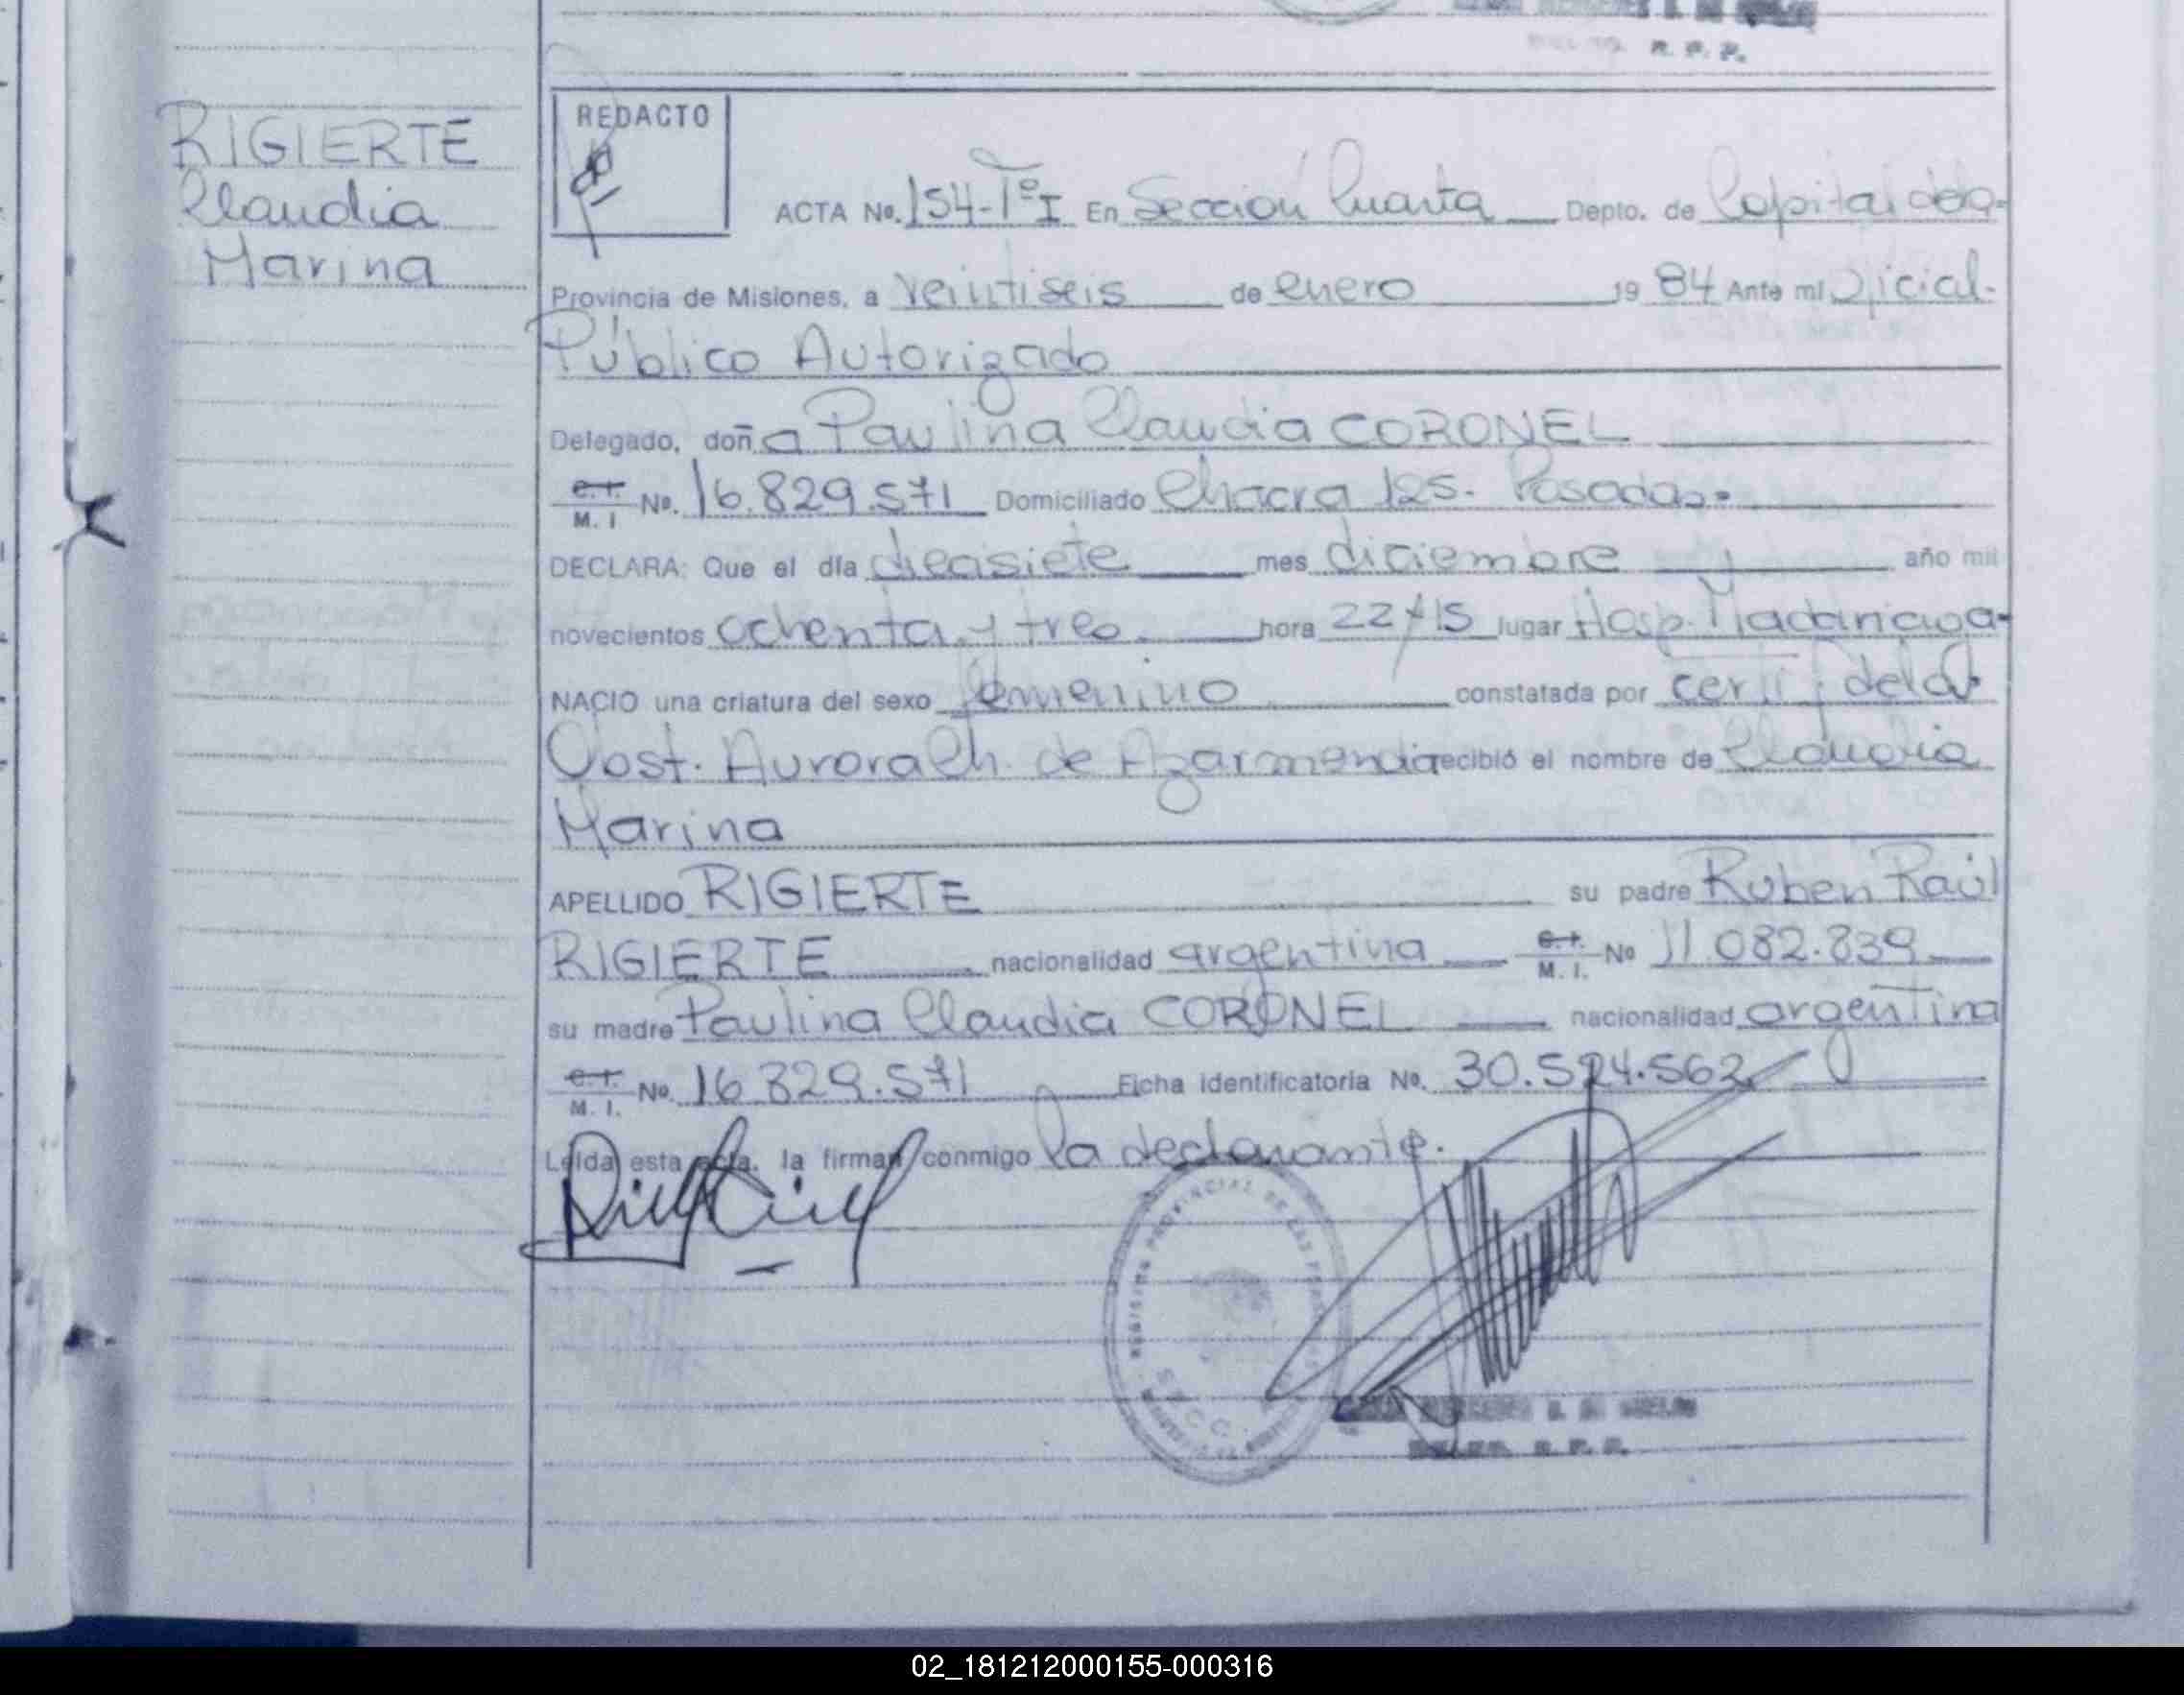 R. P. P.
RIGIERTE
Claudia
Marina
REDACTO
ACTA No. 154-TºI En Sección Cuarta Depto. de Capital de la
Provincia de Misiones, a veintiseis de enero 19 84 Ante mi Oficial
Público Autorizado
Delegado, doña Paulina Claudia CORONEL
C.I. M. I No. 16.829.571 Domiciliado Chacra 125. Posadas.
DECLARA: Que el día diecisiete mes diciembre año mil
novecientos ochenta y tres hora 22 y 15 lugar Hosp. Madariaga
NACIO una criatura del sexo femenino constatada por certif. de la
Obst. Aurora Ch. de Azarmendia recibió el nombre de Claudia
Marina
APELLIDO RIGIERTE su padre Ruben Raúl
RIGIERTE nacionalidad argentina C.I. M. I. No 11.082.839
su madre Paulina Claudia CORONEL nacionalidad argentina
C.I. M. I. No. 16.829.571 Ficha identificatoria No. 30.524.562
Leída esta acta, la firman conmigo la declarante.
REGISTRO PROVINCIAL DE LAS PERSONAS
R. P. P.
02_181212000155-000316